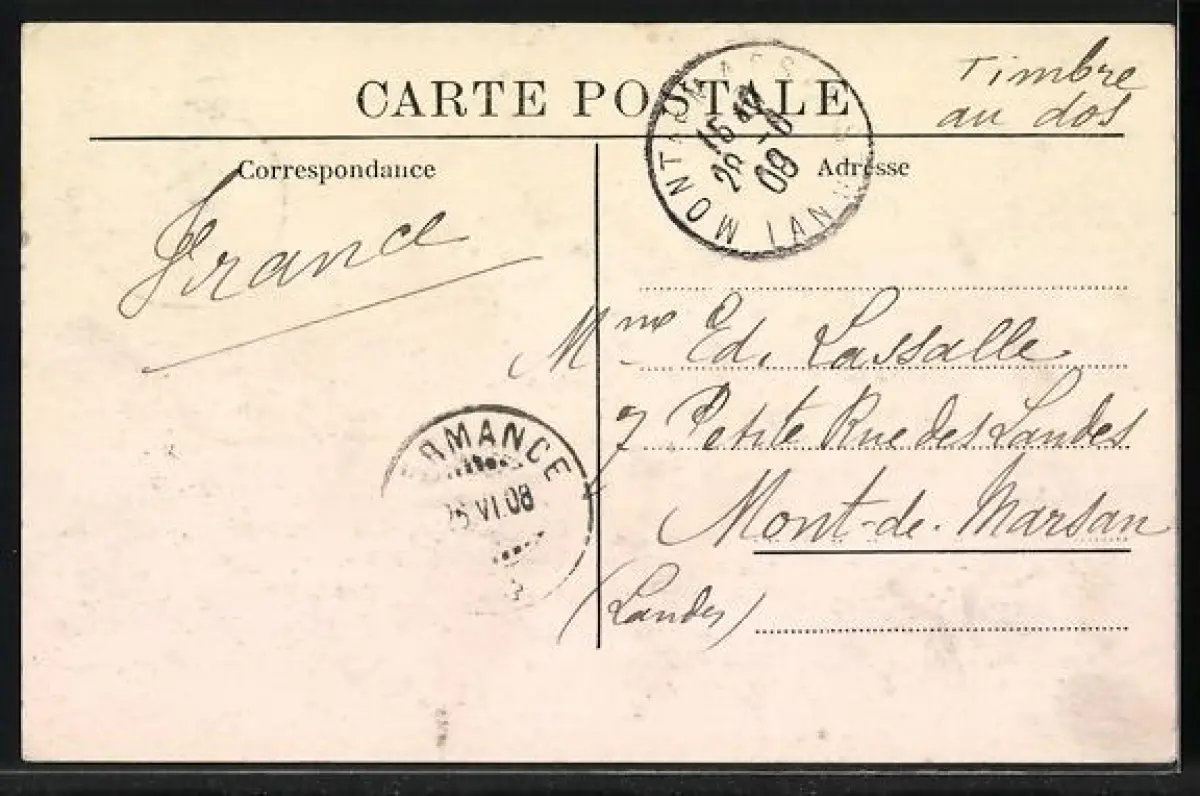 CARTE POSTALE
Timbre
au dos
Correspondance
Adresse
France
Mme Ed. Lassalle
7 Petite Rue des Landes
Mont-de-Marsan
(Landes)
MONT
15
08
ERMANCE
VI.08